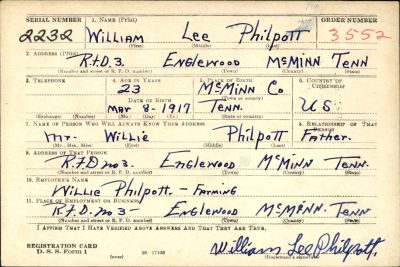 SERIAL NUMBER 1. NAME (Print) ORDER NUMBER
2232 WILLIAM Lee Philpott 3552
(First) (Middle) (Last)
2. ADDRESS (Print)
R.F.D. 3. Englewood McMinn Tenn
(Number and street or R. F. D. number) (Town) (County) (State)
3. TELEPHONE 4. AGE IN YEARS 5. PLACE OF BIRTH 6. COUNTRY OF CITIZENSHIP
23 McMinn Co
DATE OF BIRTH (Town or county)
Mar 8-1917 Tenn. U.S.
(Exchange) (Number) (Mo.) (Day) (Yr.) (State or country)
7. NAME OF PERSON WHO WILL ALWAYS KNOW YOUR ADDRESS 8. RELATIONSHIP OF THAT PERSON
Mr. Willie Philpott Father.
(Mr., Mrs., Miss) (First) (Middle) (Last)
9. ADDRESS OF THAT PERSON
R.F.D no 3. Englewood McMinn Tenn.
(Number and street or R. F. D. number) (Town) (County) (State)
10. EMPLOYER'S NAME
Willie Philpott. - Farming
11. PLACE OF EMPLOYMENT OR BUSINESS
R.F.D. no 3- Englewood McMinn. Tenn
(Number and street or R. F. D. number) (Town) (County) (State)
I AFFIRM THAT I HAVE VERIFIED ABOVE ANSWERS AND THAT THEY ARE TRUE.
REGISTRATION CARD
D. S. S. Form 1 (over) 16-17105 William Lee Philpott.
(Registrant's signature)